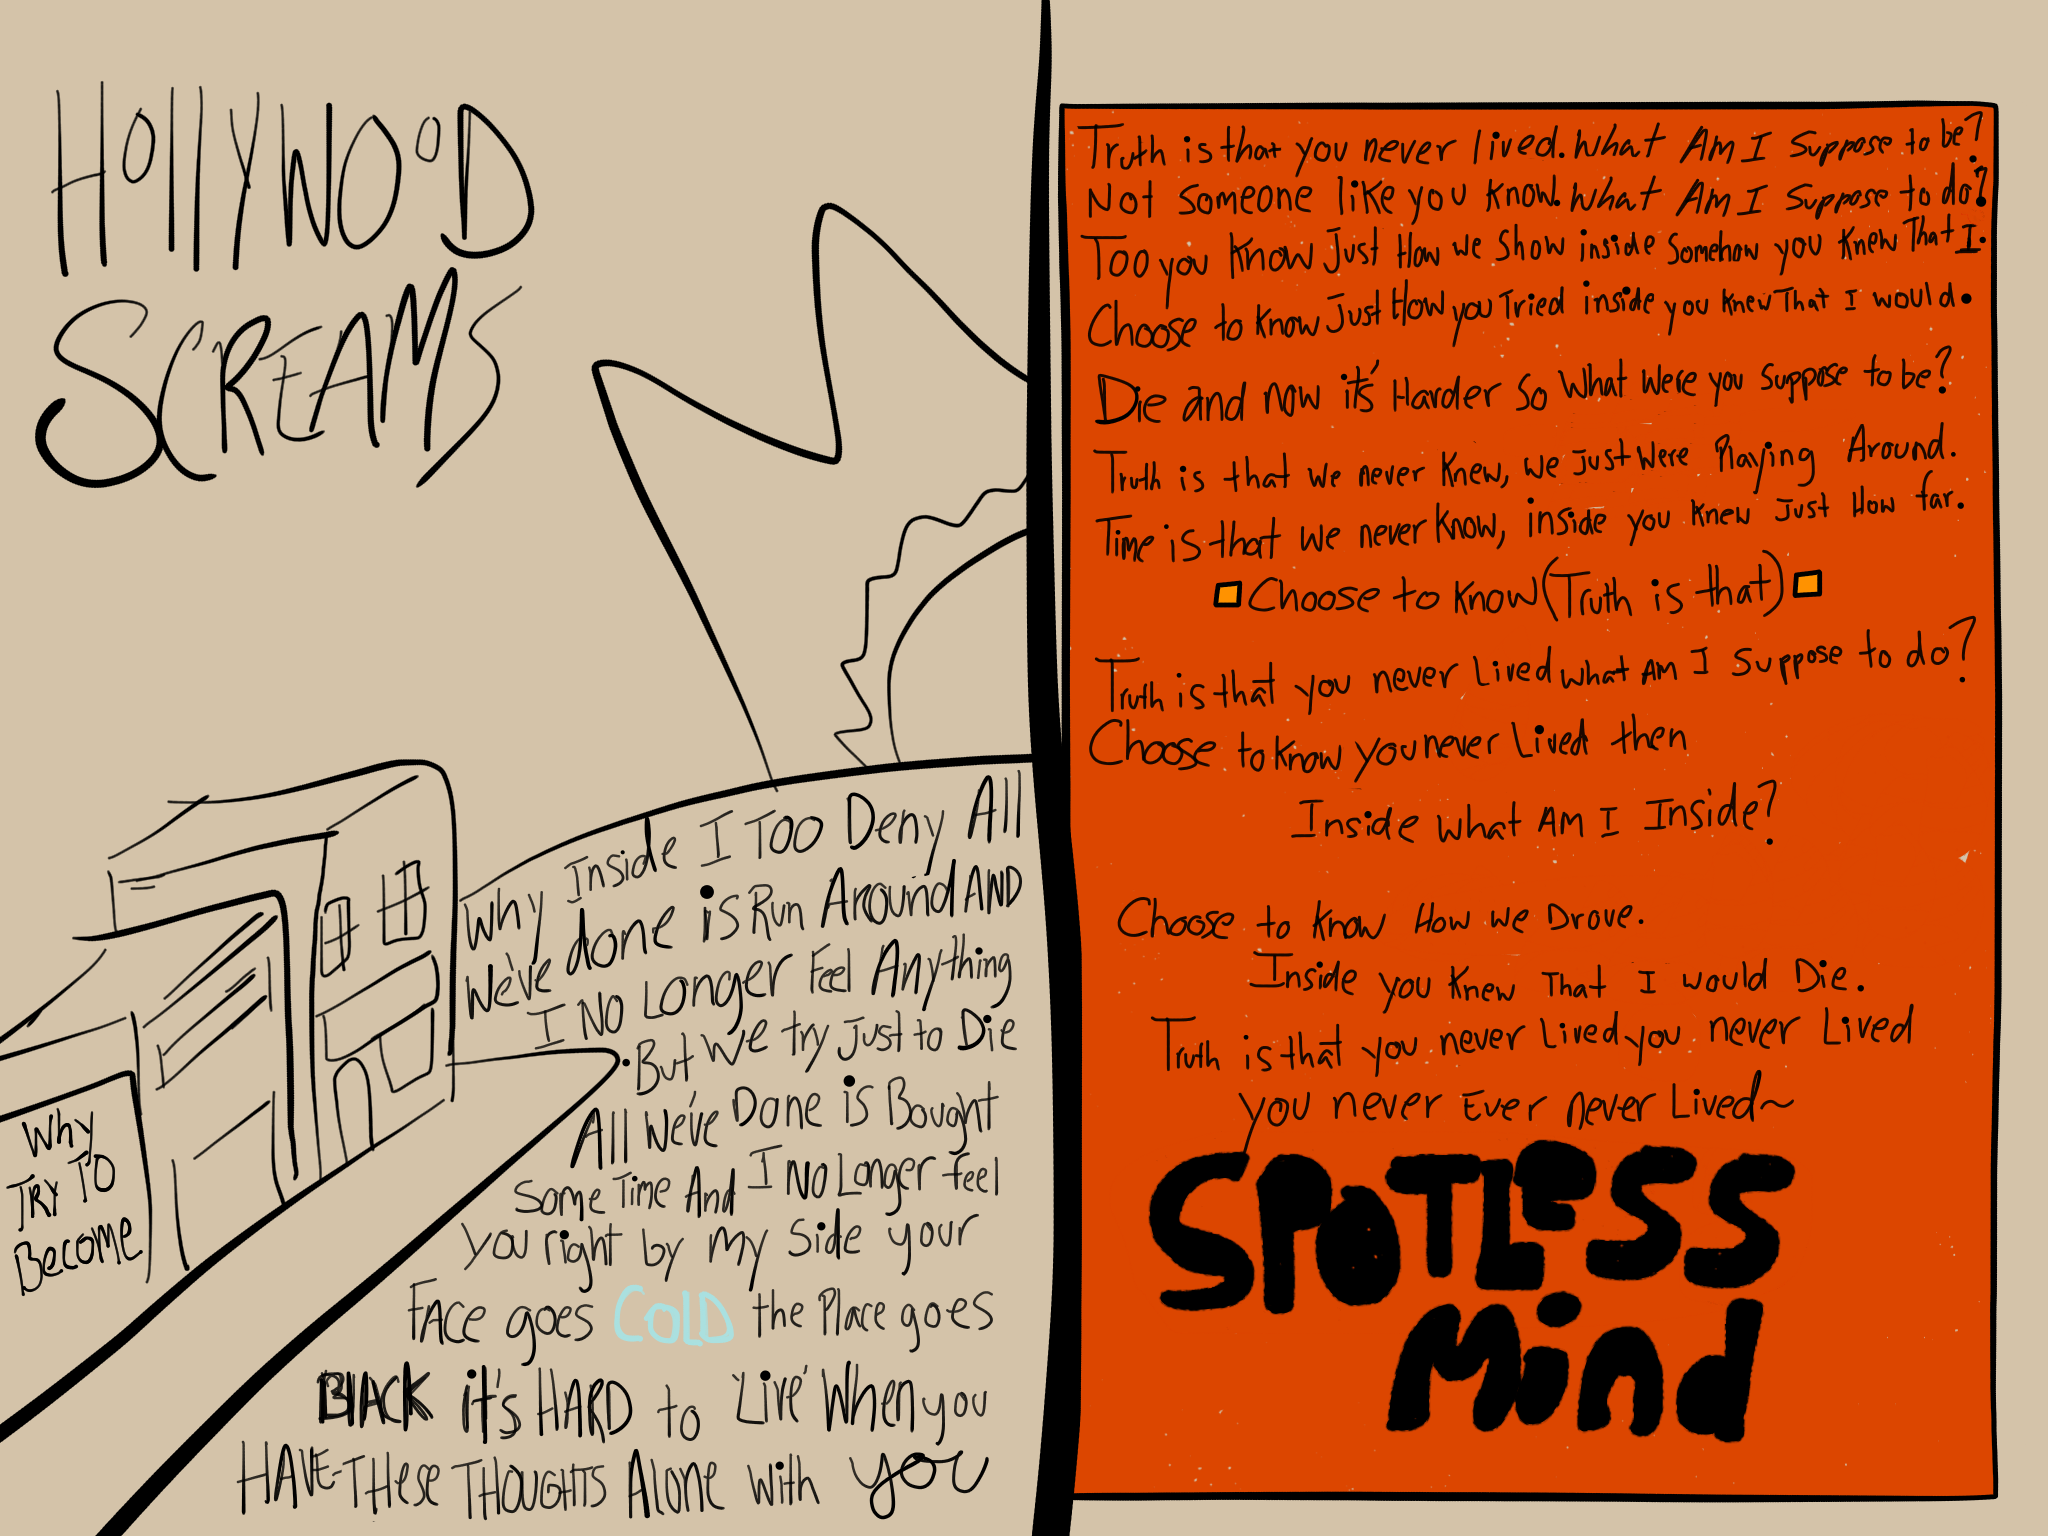 HOllYWOOD
SCREAMS
Why Inside I TOO Deny All
We've done is Run Around AND
I NO LOnger Feel Anything
.But We try Just to Die
All We've Done is Bought
Some Time And I NO Longer feel
you right by my side your
FACe goes COlD the Place goes
BlACK it's HARD to 'Live' When you
HAVE These THOUGHTS Alone with you
Why
TRY TO
Become
Truth is that you never lived. What Am I Suppose to be?
Not Someone like you know. What Am I Suppose to do?
Too you Know Just How we Show inside Somehow you Knew That I.
Choose to Know Just How you Tried inside you Knew That I would.
Die and now it's Harder So What Were you Suppose to be?
Truth is that We never Knew, we Just Were Playing Around.
Time is that We never Know, inside you Knew Just How far.
Choose to Know (Truth is that)
Truth is that you never Lived what Am I Suppose to do?
Choose to Know you never Lived then
Inside what AM I Inside?
Choose to Know How We Drove.
Inside you Knew That I would Die.
Truth is that you never Lived you never Lived
you never Ever never Lived~
SPOTLESS
Mind